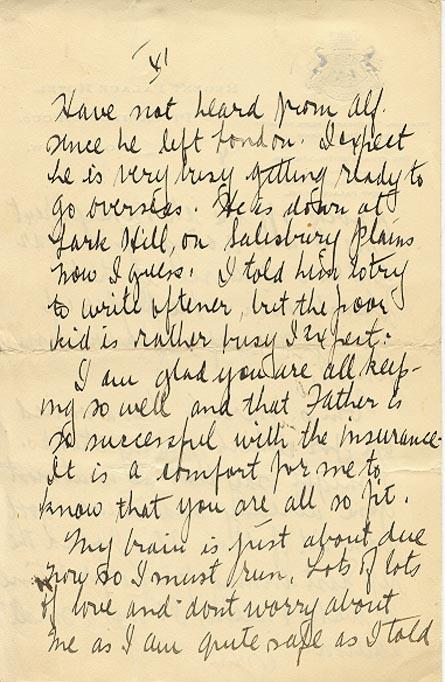 XI
Have not heard from Alf.
since he left London. I expect
he is very busy getting ready to
go overseas. He is down at
Lark Hill, on Salisbury Plains
now I guess. I told him to try
to write oftener, but the poor
kid is rather busy I expect.
I am glad you are all keep-
ing so well and that Father is
so successful with the insurance.
It is a comfort for me to
know that you are all so fit.
My brain is just about due
now so I must run. Lots of lots
of love and dont worry about
me as I am quite safe as I told